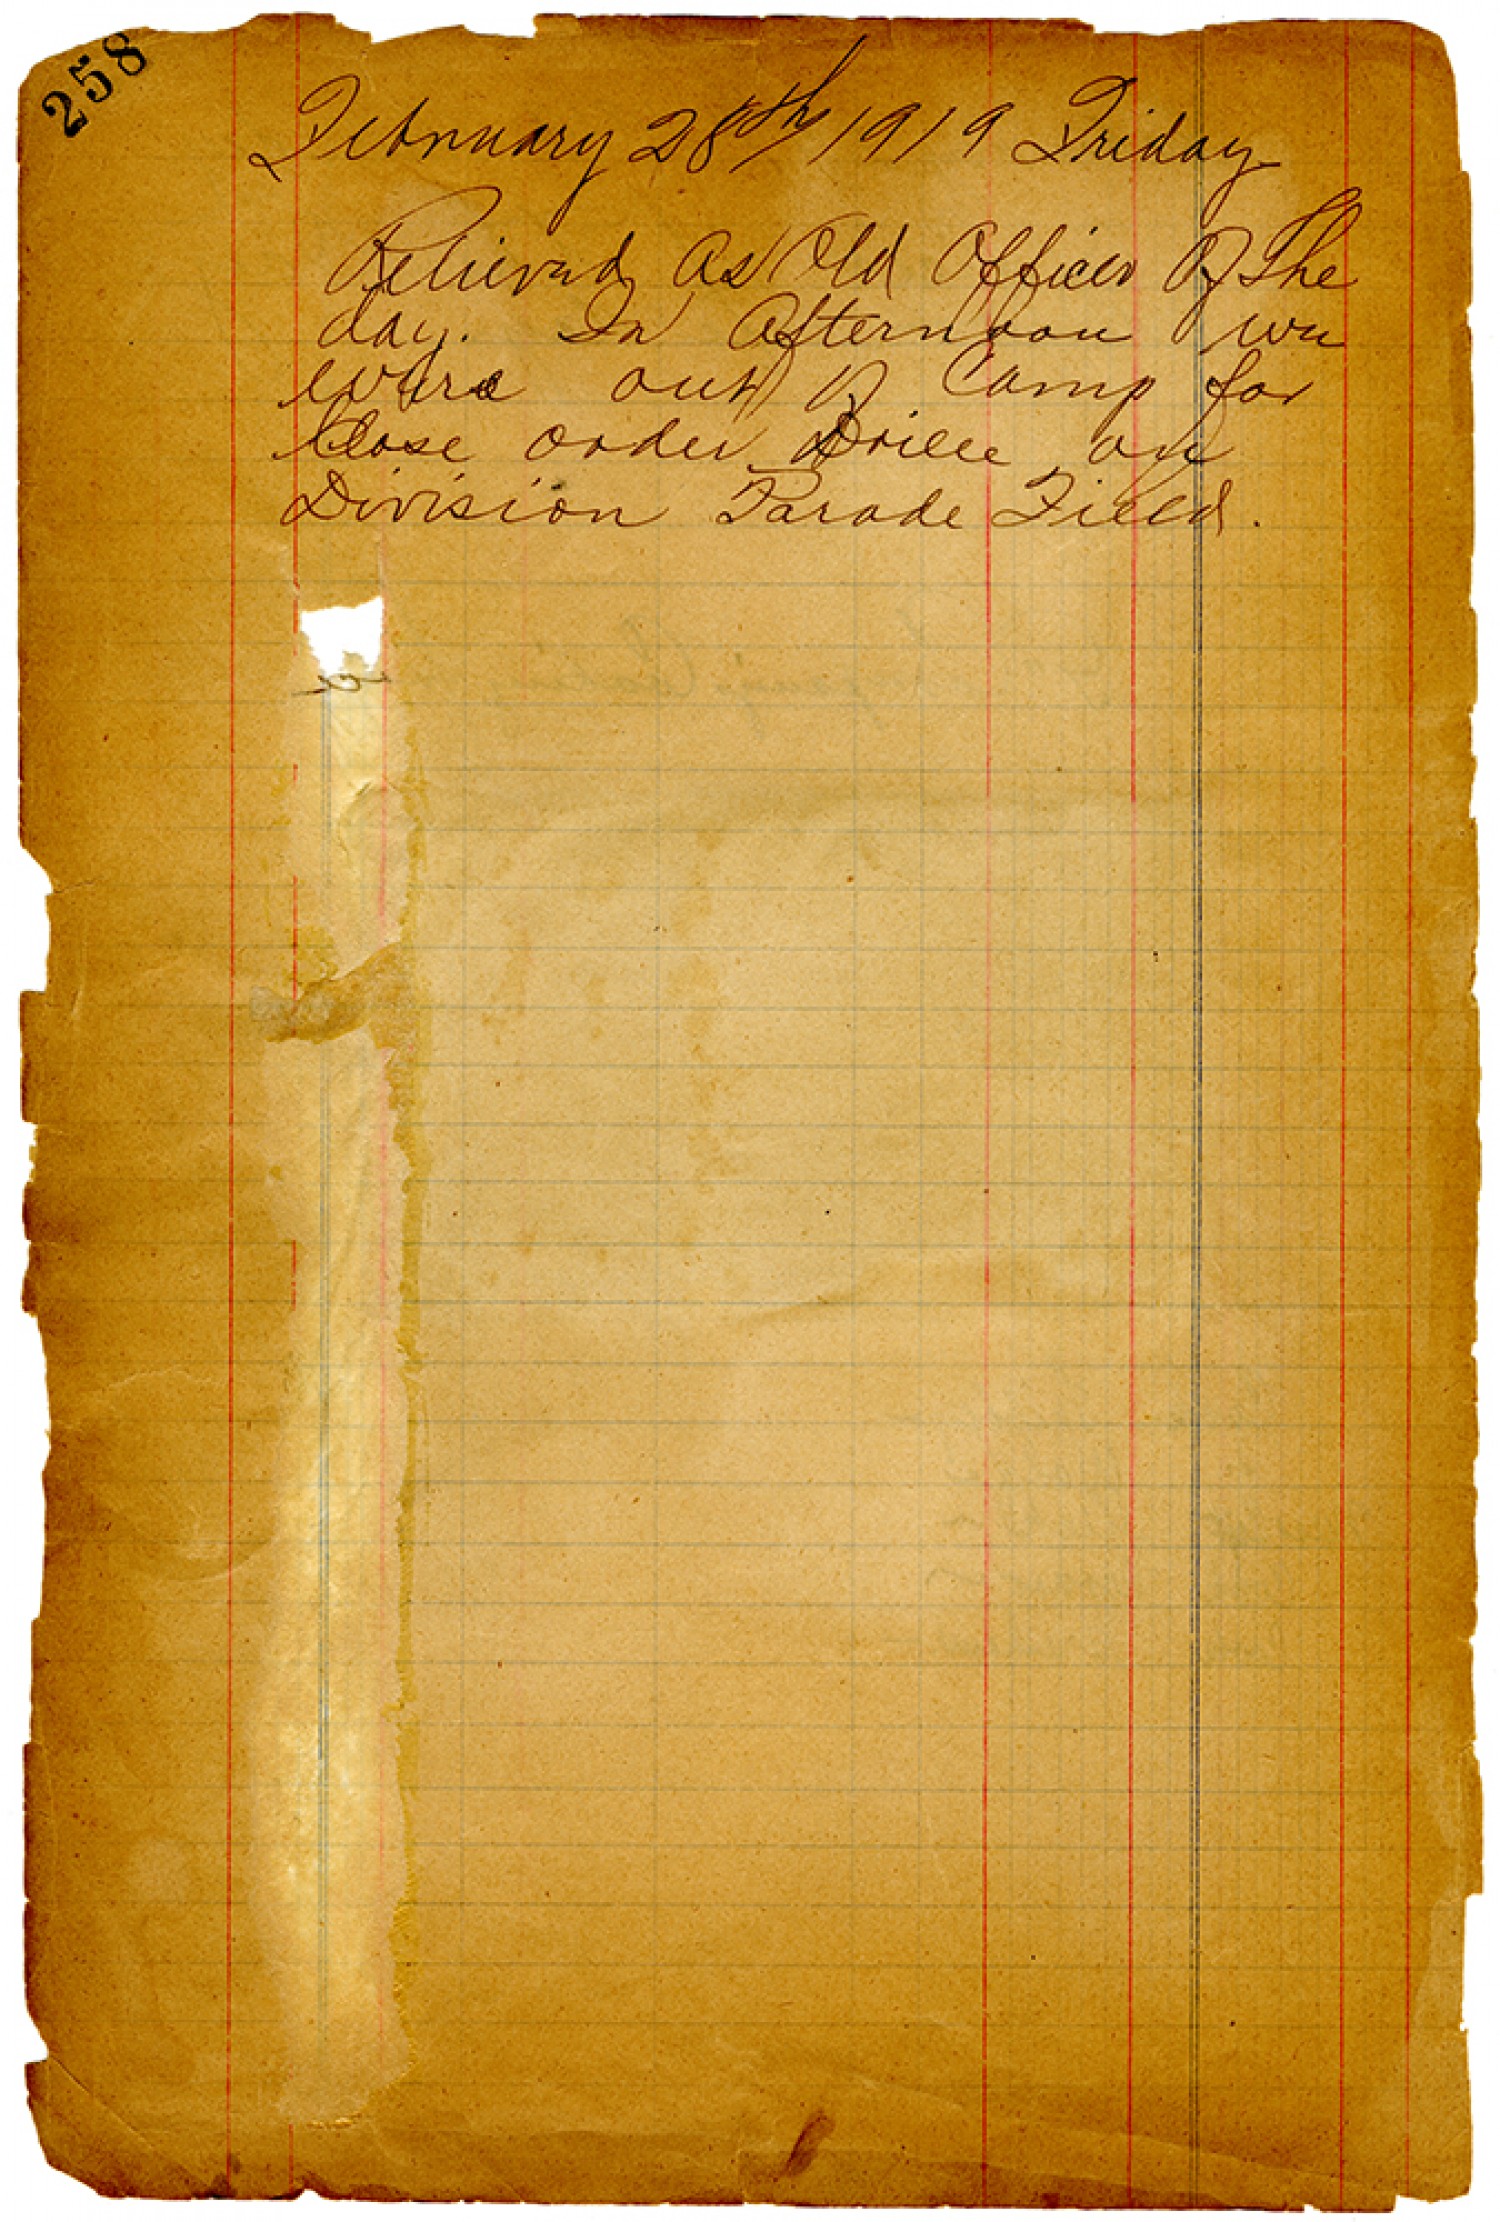 258
February 28th 1919 Friday
Relieved As Old Officer Of The
day. In Afternoon we
were out of Camp for
Close order Drill on
Division Parade Field.